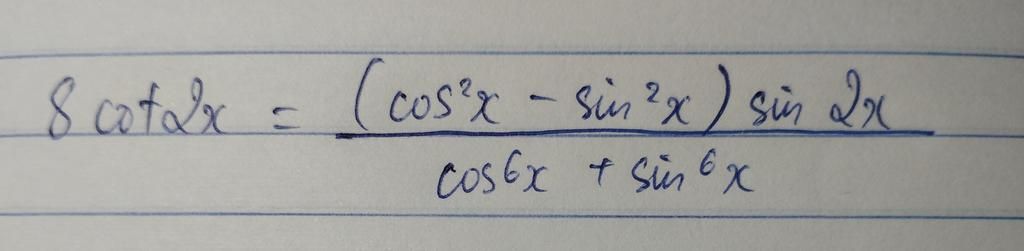 8 cot2x = (cos²x - sin²x) sin 2x / cos⁶x + sin⁶x